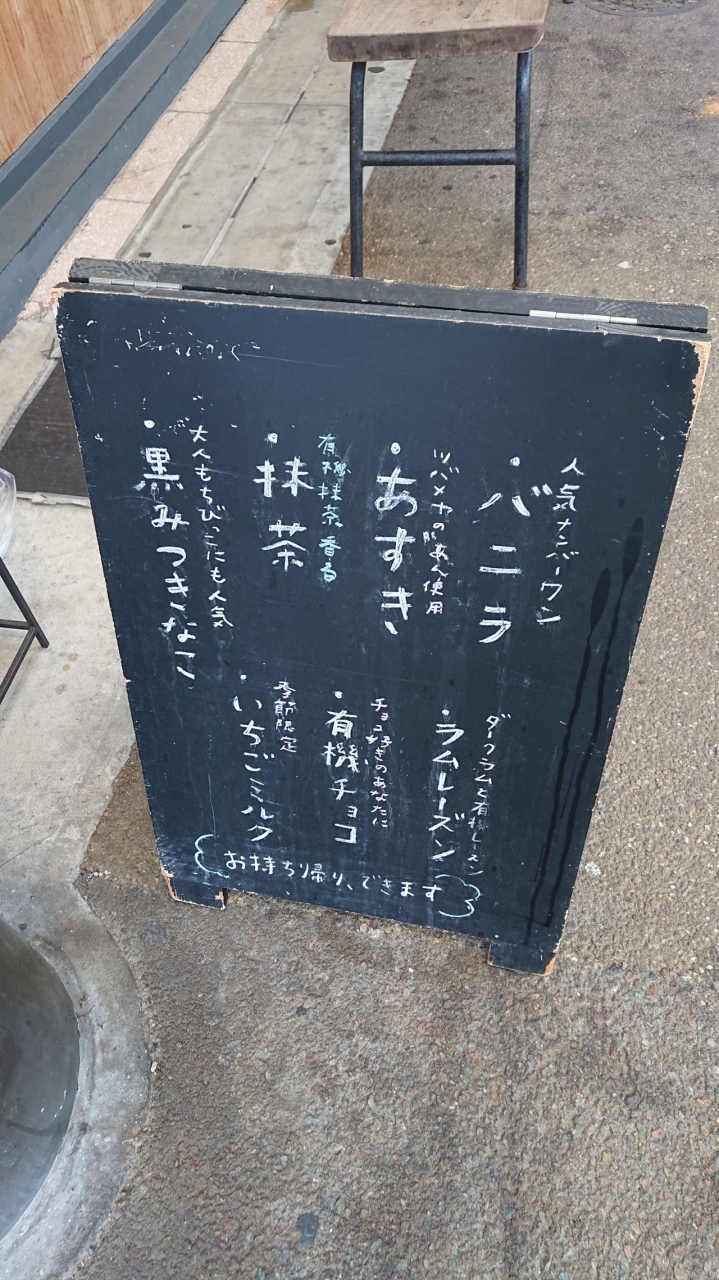 人気ナンバーワン
・バニラ
ツバメヤのあん使用
・あずき
有機抹茶香る
・抹茶
大人もちびっこにも人気
・黒みつきなこ
ダークラムと有機レーズン
・ラムレーズン
チョコ好きのあなたに
・有機チョコ
季節限定
・いちごミルク
お持ち帰り、できます